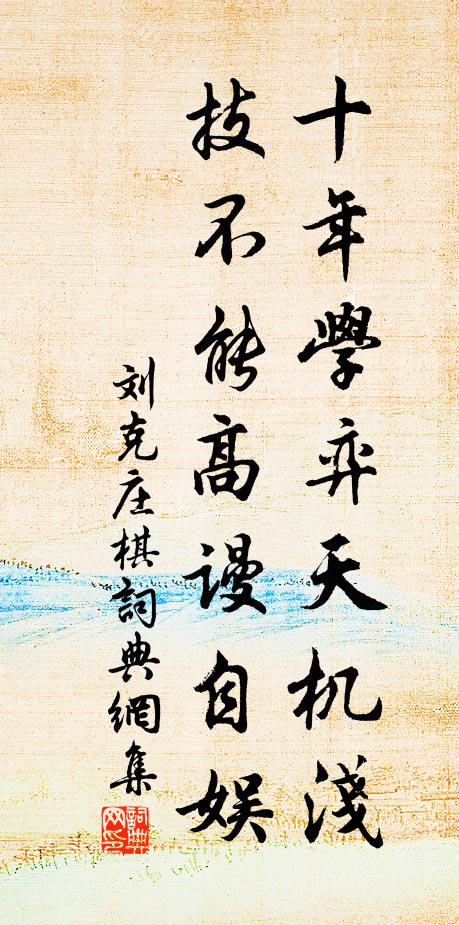 十年學弈天机淺
技不能高謾自娱
刘克庄棋詞典網集
詞典網印